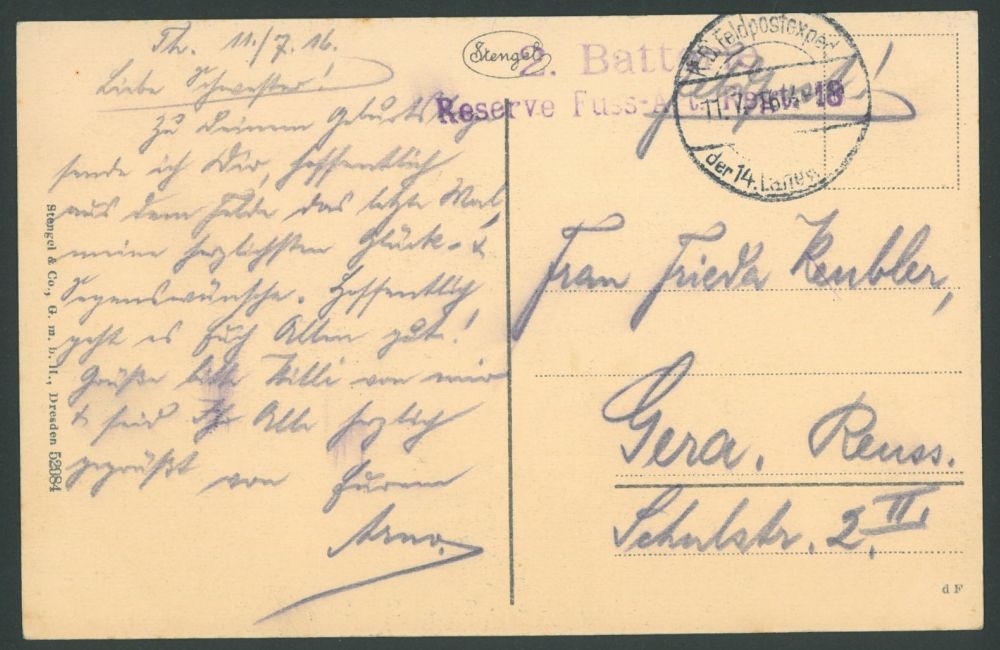 Th. 11./7.16.
Liebe Schwester!
Zu Deinem Geburtstag
sende ich Dir, hoffentlich
aus dem Felde das letzte Mal,
meine herzlichsten Glück- &
Segenswünsche. Hoffentlich
geht es Euch Allen gut!
Grüße bitte Willi von mir
& seid Ihr Alle herzlich
gegrüßt von Eurem
Arno.
Stengel & Co., G. m. b. H., Dresden 52084
Stengel
2. Batterie
Reserve Fuss-Art. Regt. 18
Feldpost!
K.D. Feldpostexped.
11.7.16
der 14. Landw.
Frau Frieda Keubler,
Gera, Reuss.
Schulstr. 2. II.
d F